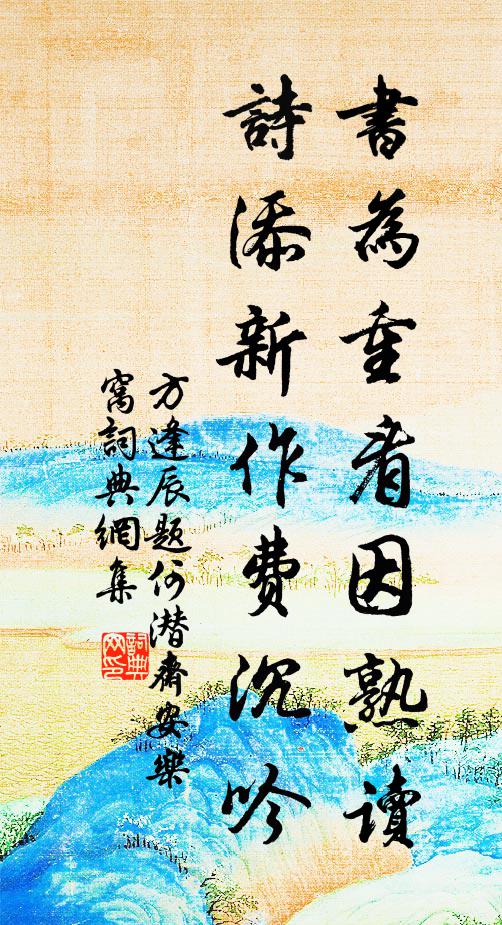 書為重看因熟讀
詩添新作費沉吟
方逢辰題何潜齋安樂
窩詞典網集
詞典
网印